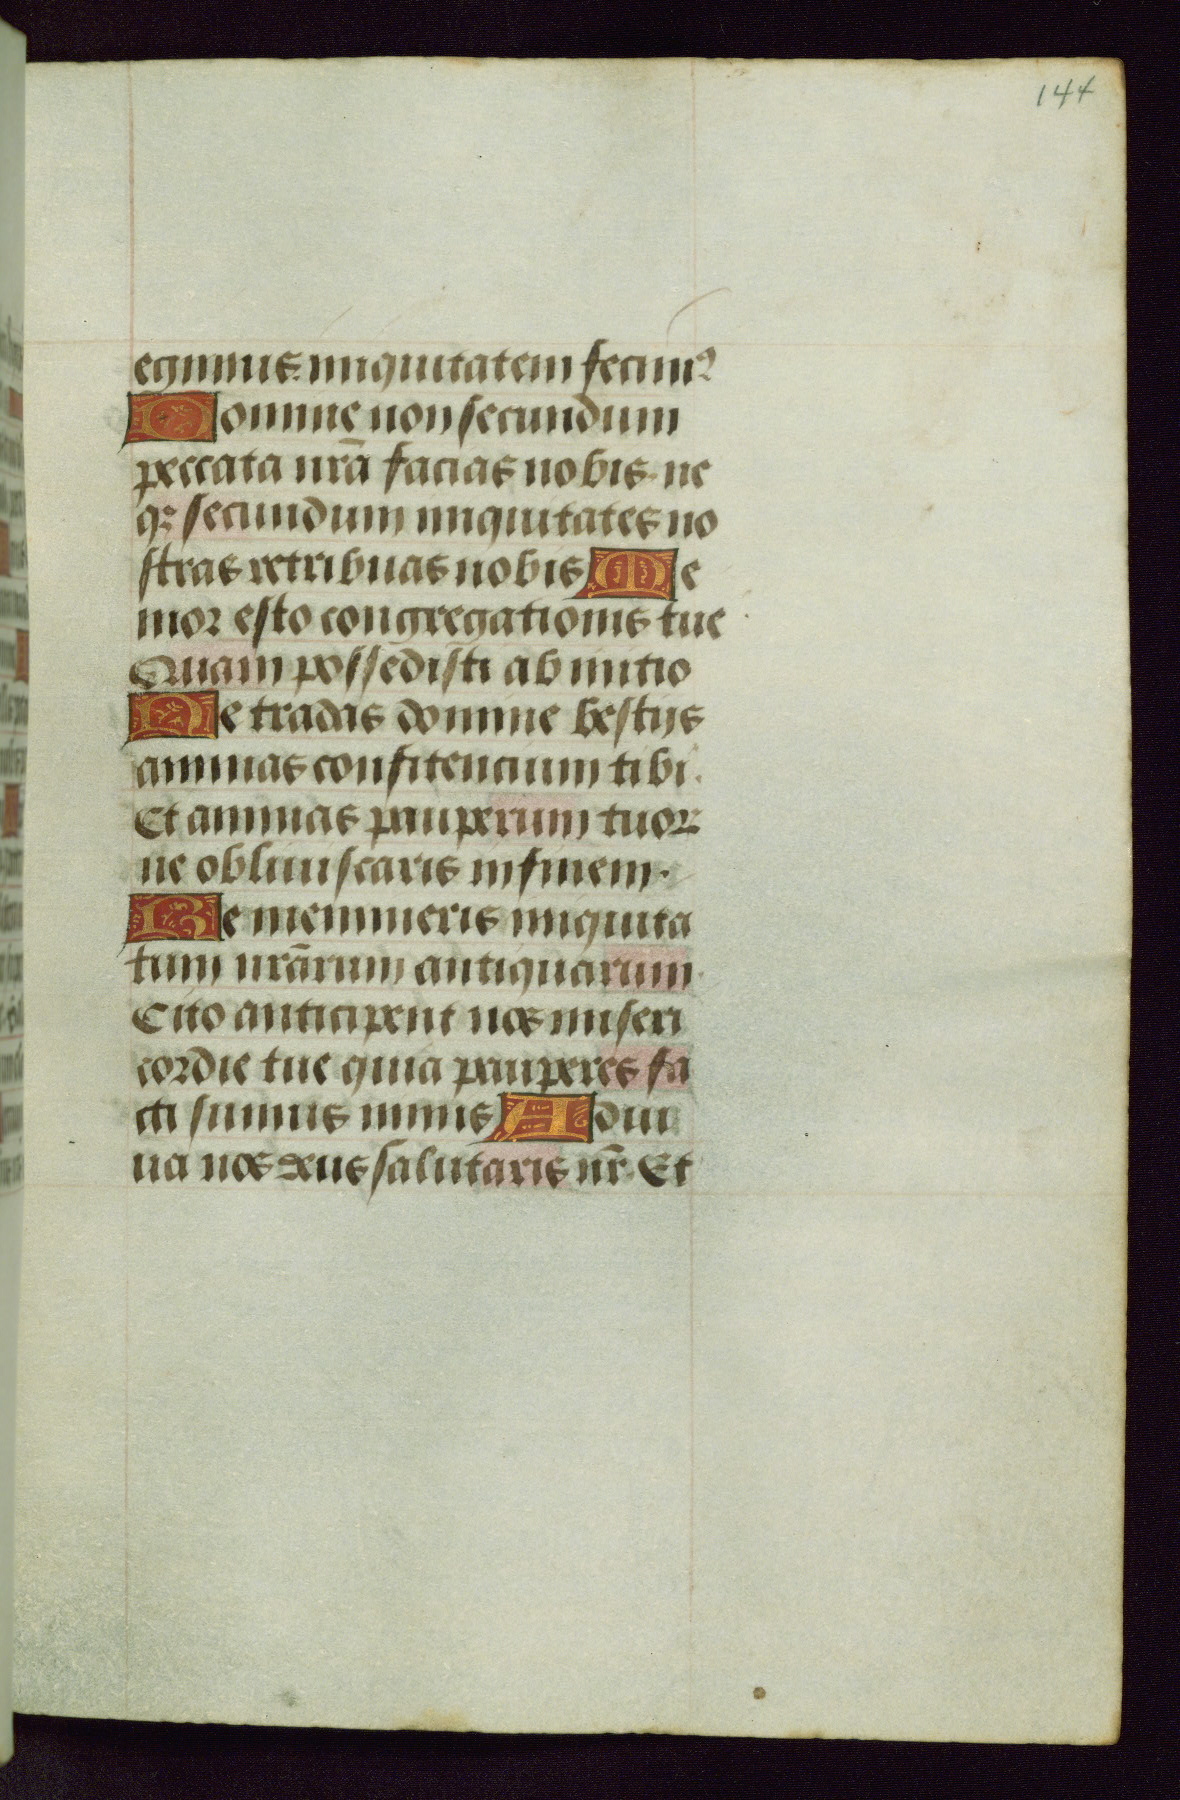 144
egimus. iniquitatem fecimꝰ
Domine non secundum
peccata nr̄a facias nobis. ne
qꝫ secundum iniquitates no
stras retribuas nobis Me
mor esto congregationis tue
Quam possedisti ab initio
Ne tradas domine bestijs
animas confitencium tibi.
Et animas pauperum tuoꝝ
ne obliuiscaris in finem.
Re memineris iniquita
tum nr̄arum antiquarum.
Cito anticipent nos miseri
cordie tue quia pauperes fa
cti sumus nimis Adiu
ua nos deus salutaris nr̄. Et